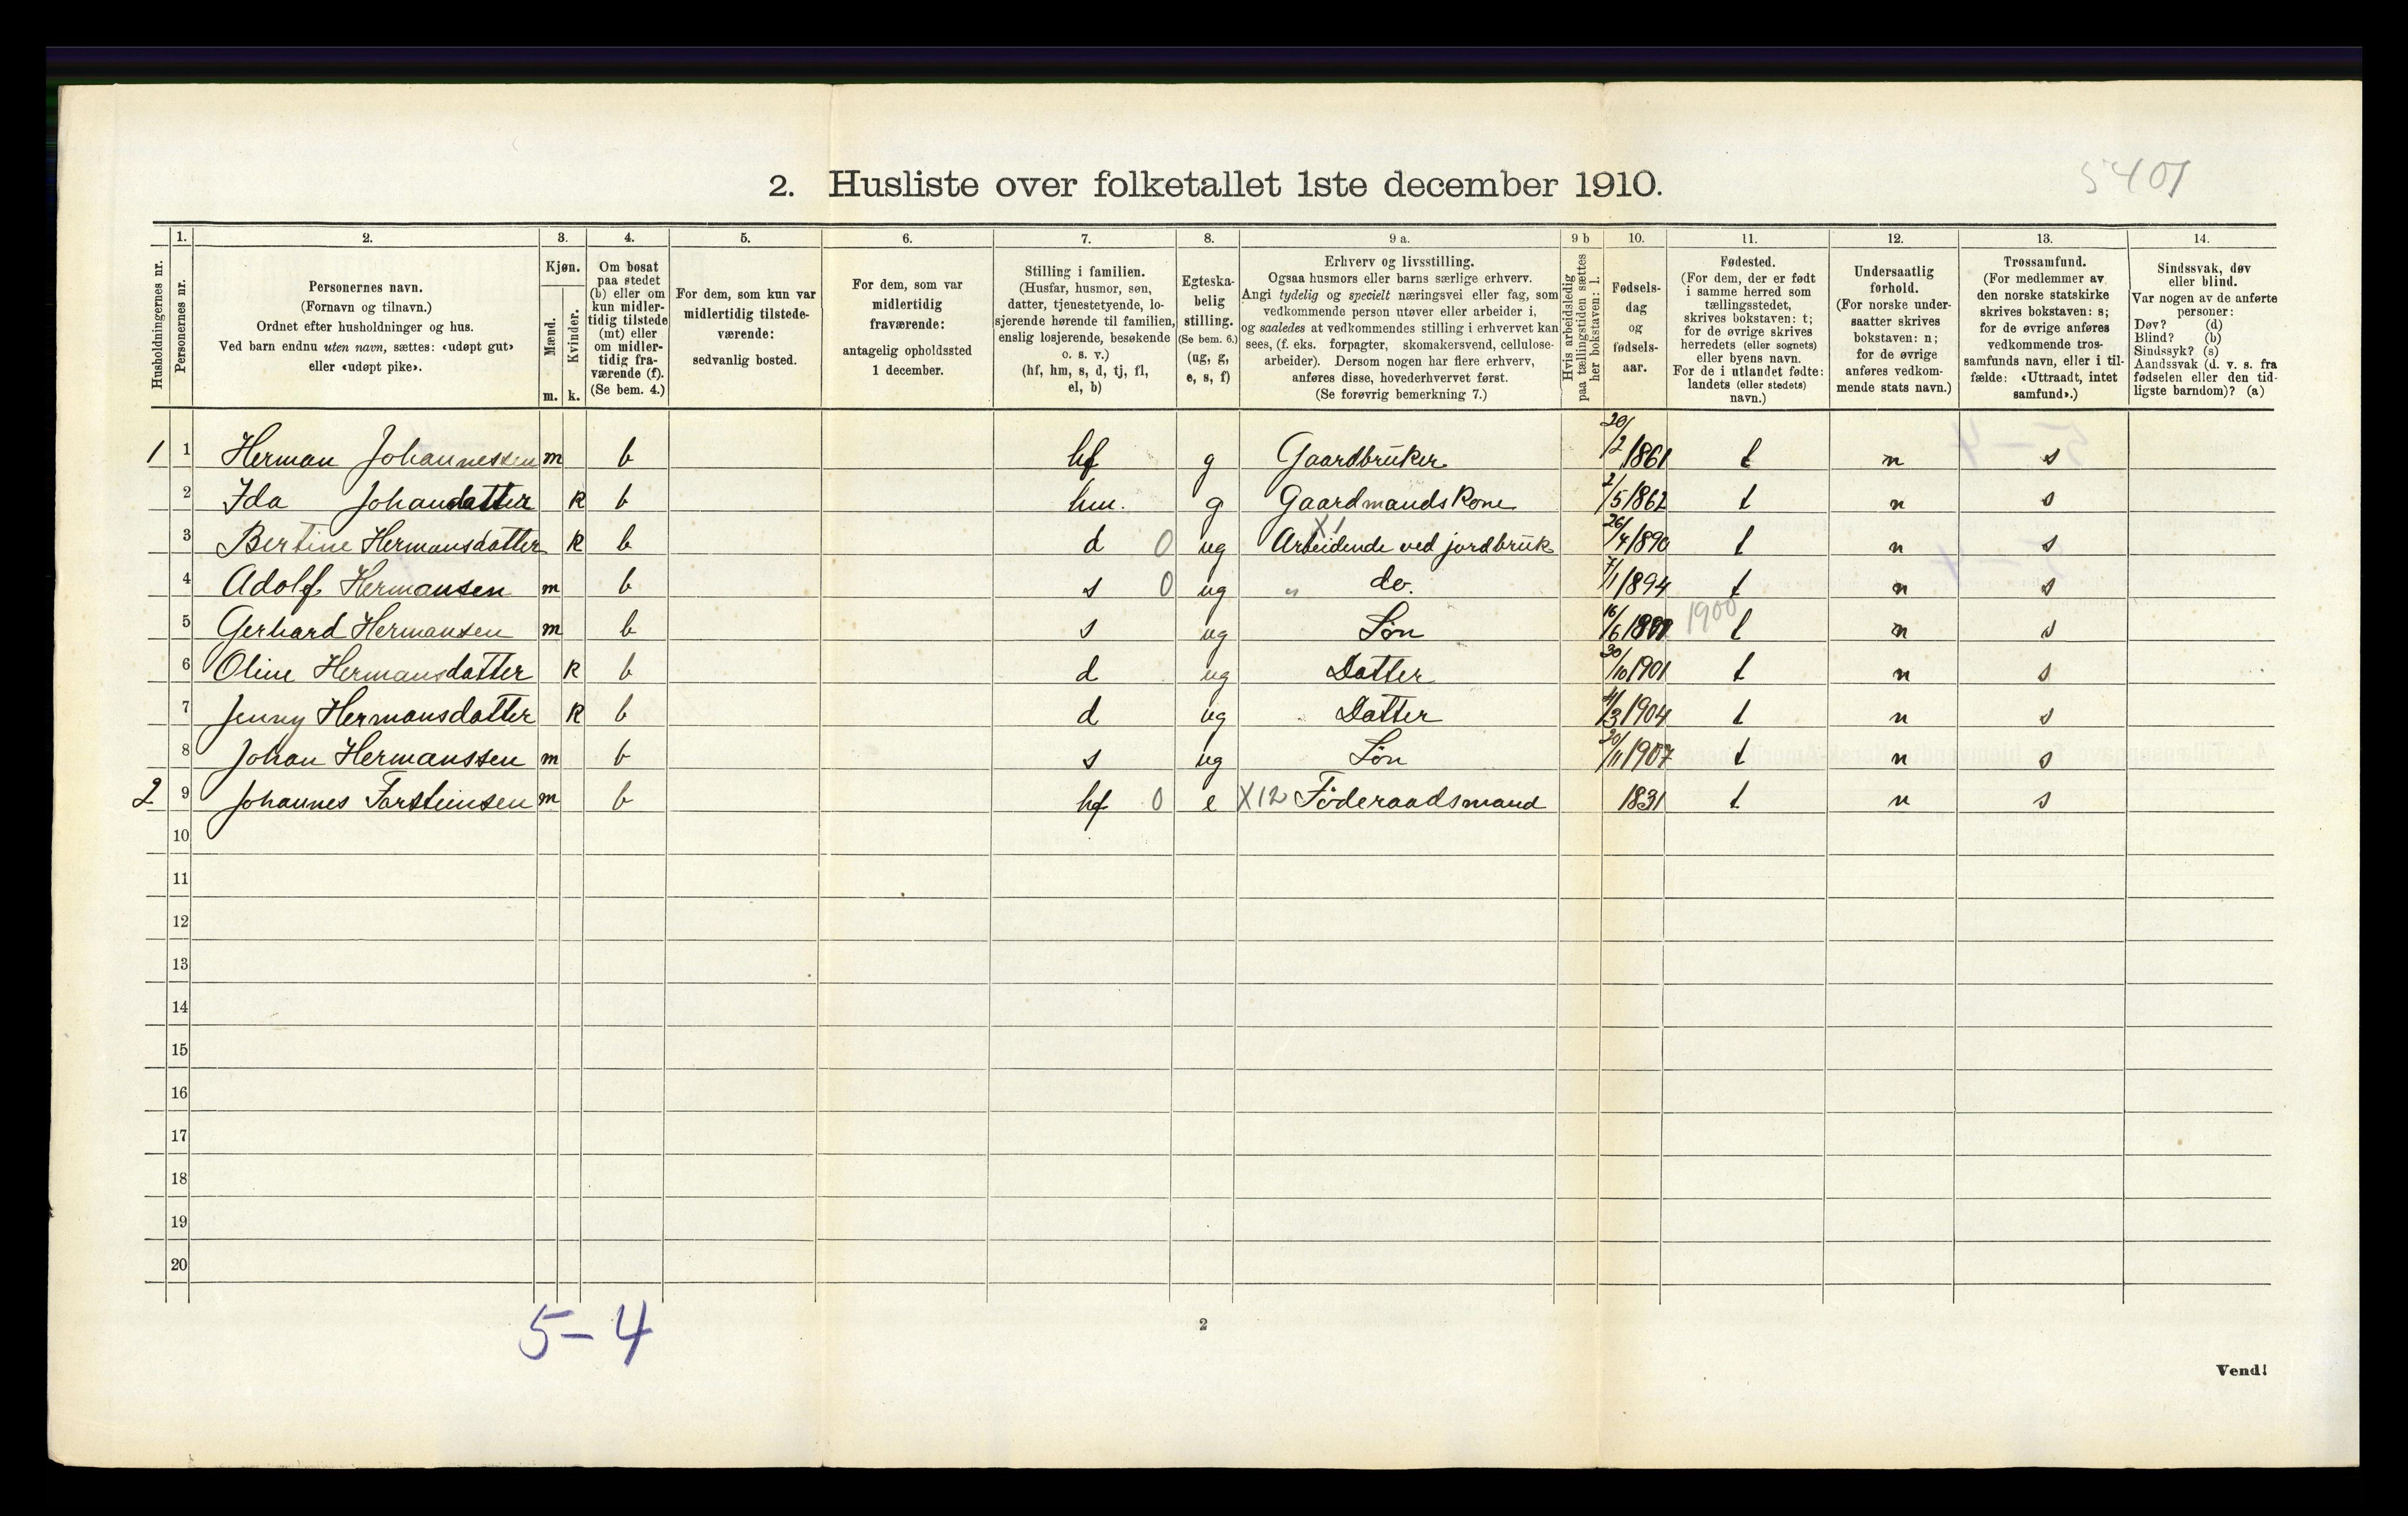 5401
2. Husliste over folketallet 1ste december 1910.
Husholdningernes nr.
1. Personernes nr.
2. Personernes navn.
(Fornavn og tilnavn.)
Ordnet efter husholdninger og hus.
Ved barn endnu uten navn, sættes: «udøpt gut»
eller «udøpt pike».
3. Kjøn.
Mænd. Kvinder.
m. k.
4. Om bosat
paa stedet
(b) eller om
kun midler-
tidig tilstede
(mt) eller
om midler-
tidig fra-
værende (f).
(Se bem. 4.)
5. For dem, som kun var
midlertidig tilstede-
værende:
sedvanlig bosted.
6. For dem, som var
midlertidig
fraværende:
antagelig opholdssted
1 december.
7. Stilling i familien.
(Husfar, husmor, søn,
datter, tjenestetyende, lo-
sjerende hørende til familien,
enslig losjerende, besøkende
o. s. v.)
(hf, hm, s, d, tj, fl,
el, b)
8. Egteska-
belig
stilling.
(Se bem. 6.)
(ug, g,
e, s, f)
9 a. Erhverv og livsstilling.
Ogsaa husmors eller barns særlige erhverv.
Angi tydelig og specielt næringsvei eller fag, som
vedkommende person utøver eller arbeider i,
og saaledes at vedkommendes stilling i erhvervet kan
sees, (f. eks. forpagter, skomakersvend, cellulose-
arbeider). Dersom nogen har flere erhverv,
anføres disse, hovederhvervet først.
(Se forøvrig bemerkning 7.)
9 b Hvis arbeidsledig
paa tællingstiden sættes
her bokstaven: l.
10. Fødsels-
dag
og
fødsels-
aar.
11. Fødested.
(For dem, der er født
i samme herred som
tællingsstedet,
skrives bokstaven: t;
for de øvrige skrives
herredets (eller sognets)
eller byens navn.
For de i utlandet fødte:
landets (eller stedets)
navn.)
12. Undersaatlig
forhold.
(For norske under-
saatter skrives
bokstaven: n;
for de øvrige
anføres vedkom-
mende stats navn.)
13. Trossamfund.
(For medlemmer av
den norske statskirke
skrives bokstaven: s;
for de øvrige anføres
vedkommende tros-
samfunds navn, eller i til-
fælde: «Uttraadt, intet
samfund».)
14. Sindssvak, døv
eller blind.
Var nogen av de anførte
personer:
Døv? (d)
Blind? (b)
Sindssyk? (s)
Aandssvak (d. v. s. fra
fødselen eller den tid-
ligste barndom)? (a)
1 1 Herman Johannessen m b hf g Gaardbruker 20/2 1861 t n s
2 Ida Johansdatter k b hm. g Gaardmandskone 2/5 1862 t n s
3 Bertine Hermansdatter k b d 0 ug X1 Arbeidende ved jordbruk 26/4 1890 t n s
4 Adolf Hermansen m b s 0 ug " do. 7/1 1894 t n s
5 Gerhard Hermansen m b s ug Søn 16/6 1900 t n s
6 Oline Hermansdatter k b d ug Datter 30/10 1901 t n s
7 Jenny Hermansdatter k b d ug Datter 4/3 1904 t n s
8 Johan Hermanssen m b s ug Søn 20/11 1907 t n s
2 9 Johannes Torsteinsen m b hf 0 e X12 Föderaadsmand 1831 t n s
10
11
12
13
14
15
16
17
18
19
20
5-4
2
Vend!